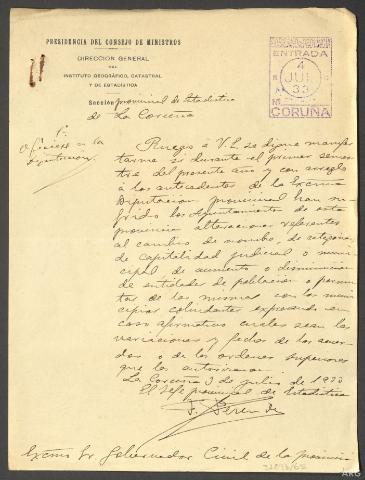 PRESIDENCIA DEL CONSEJO DE MINISTROS
DIRECCIÓN GENERAL
DEL
INSTITUTO GEOGRÁFICO, CATASTRAL
Y DE ESTADÍSTICA
Sección provincial de Estadística
de La Coruña
ENTRADA
4
JUL
33
CORUÑA
Ruego a V.E. se digne manifes
tarme si durante el primer semes
tre del presente año y con arreglo
a los antecedentes de la Excma
Diputación provincial han su
frido los Ayuntamientos de esta
provincia alteraciones referentes
al cambio de nombre, de categoría,
de capitalidad judicial o muni
cipal de aumento o disminución
de entidades de población o permu
tas de las mismas con los muni
cipios colindantes expresando en
caso afirmativo cuales sean las
variaciones y fecha de los acuer
dos o de las ordenes superiores
que lo autorizaron.
La Coruña 3 de julio de 1933
El Jefe provincial de Estadística
Excmo Sr Gobernador Civil de la provincia
ARG